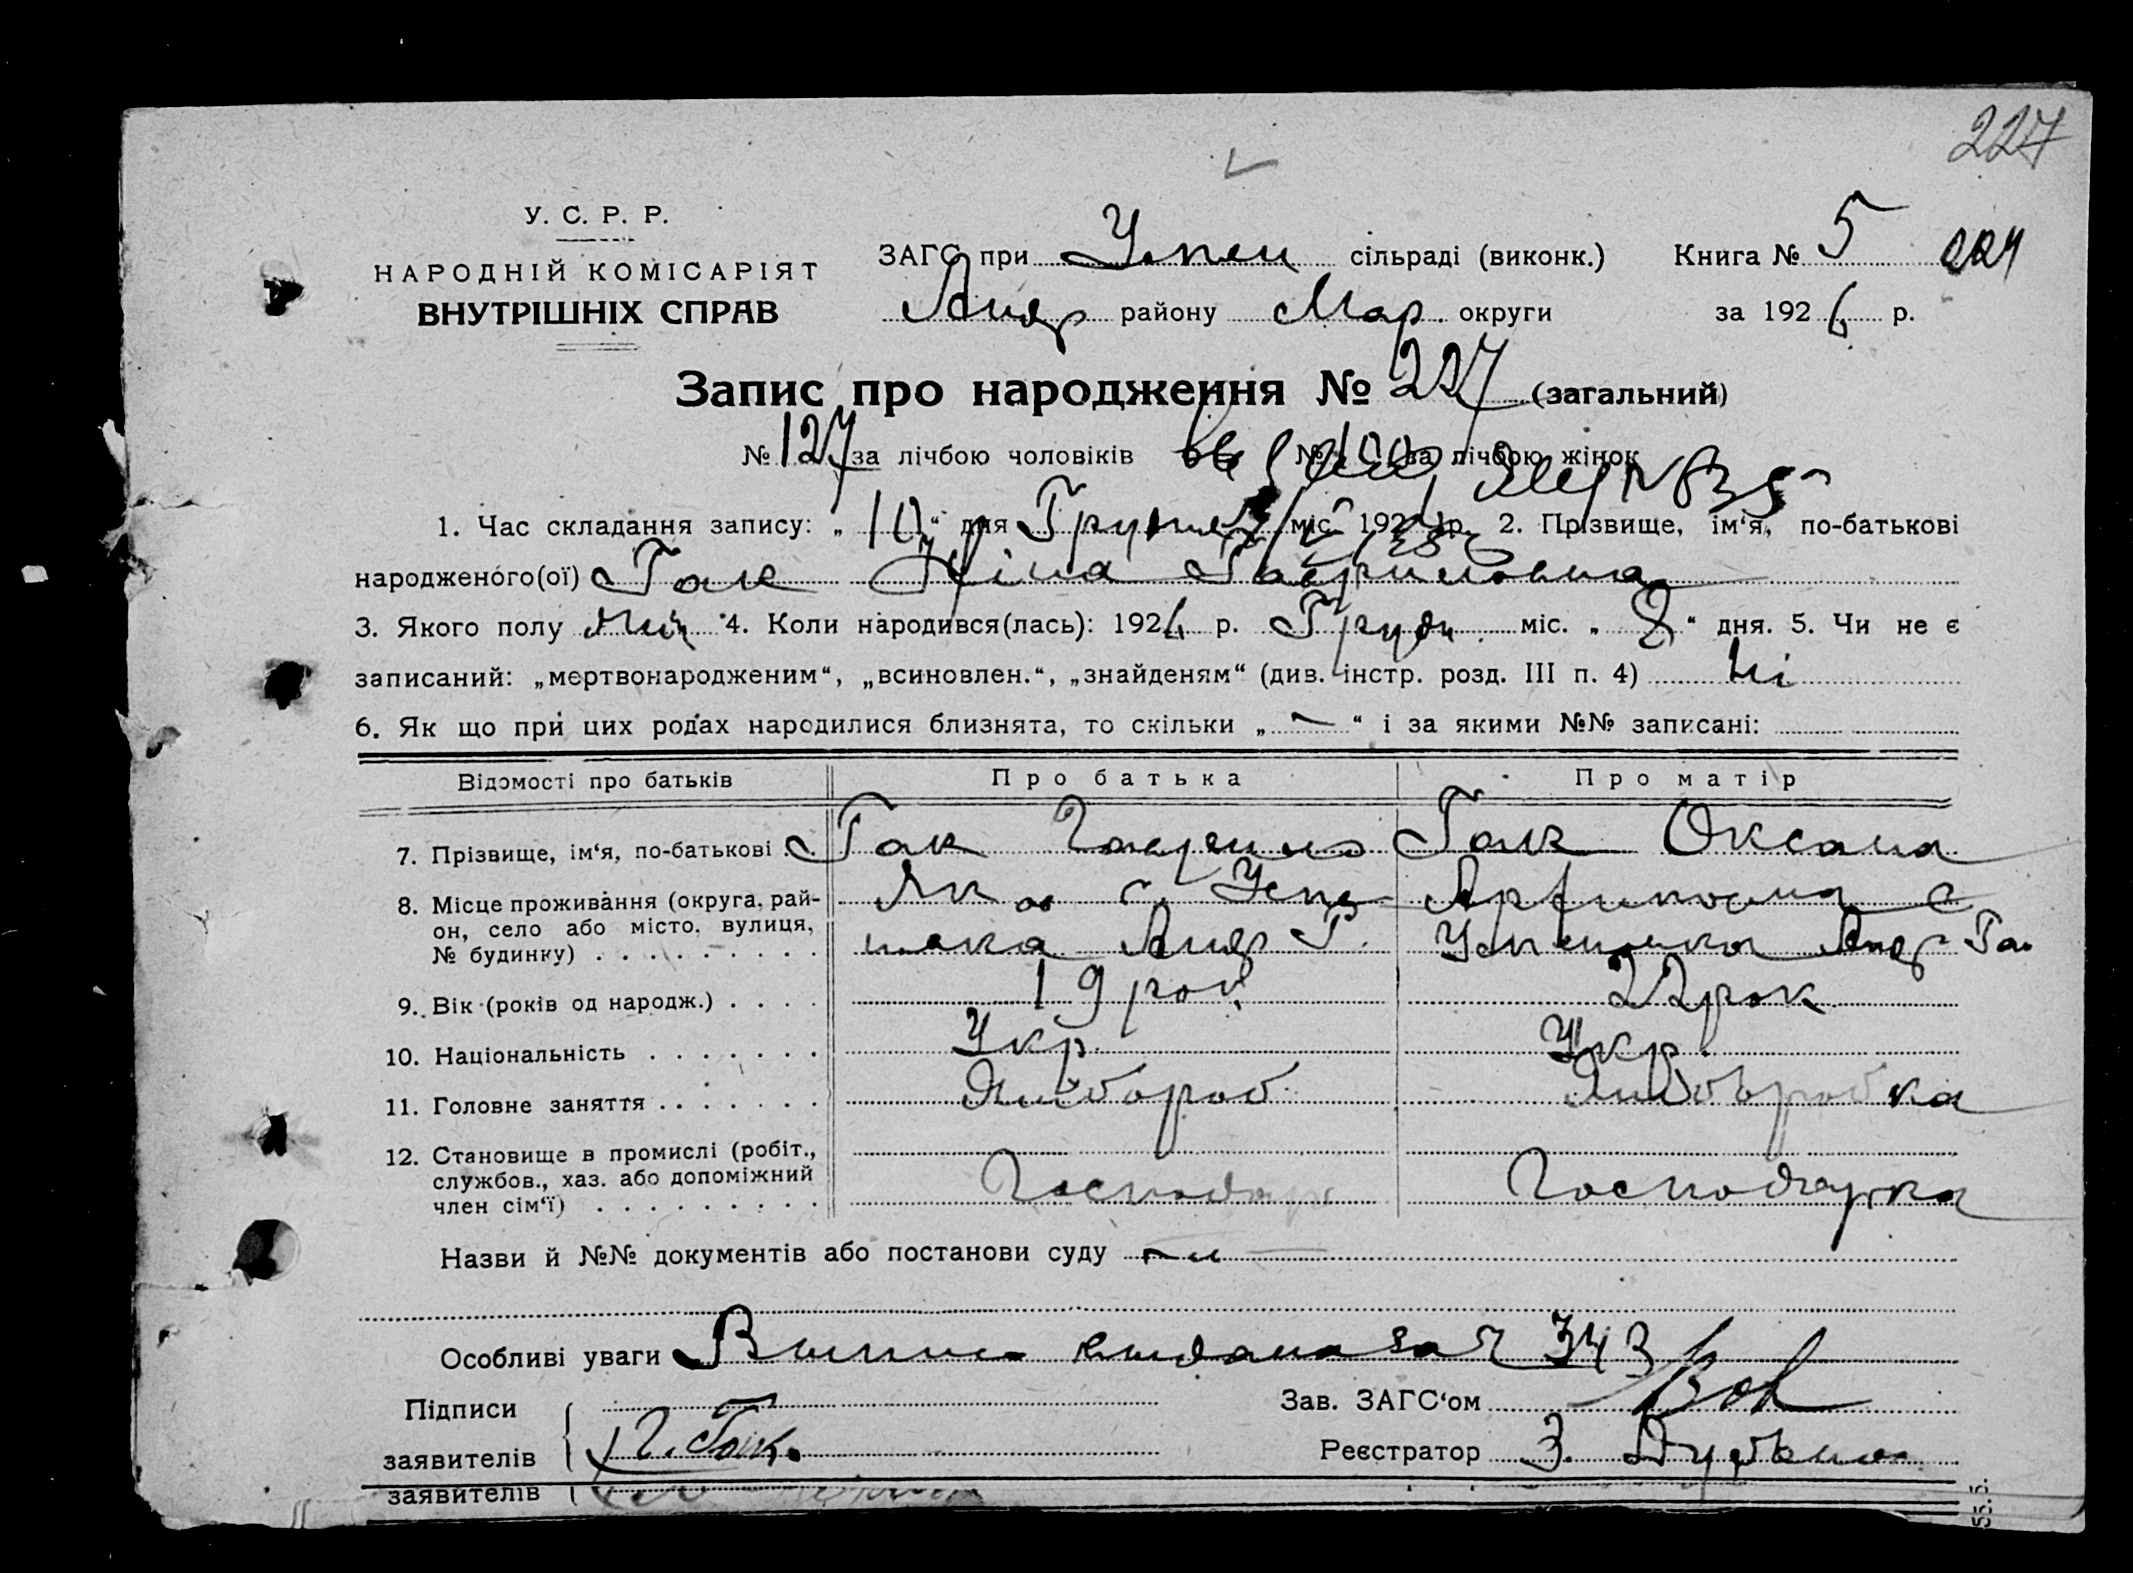 227
У. С. Р. Р.
НАРОДНІЙ КОМІСАРІЯТ
ВНУТРІШНІХ СПРАВ
ЗАГС при Успен сільраді (виконк.) Книга № 5 224
Андр району Мар. округи за 1926 р.
Запис про народження № 227 (загальний)
№ 127 за лічбою чоловіків № 100 за лічбою жінок
1. Час складання запису: „ 10 “ дня Грудня міс. 192 р. 2. Прізвище, ім‘я, по-батькові
народженого(ої) Гак Ніна Гавриловна
3. Якого полу жін 4. Коли народився(лась): 1926 р. Грудн міс. „ 8 “ дня. 5. Чи не є
записаний: „мертвонародженим“, „всиновлен.“, „знайденям“ (див. інстр. розд. III п. 4) Ні
6. Як що при цих родах народилися близнята, то скільки „ — “ і за якими №№ записані:
Відомості про батьків Про батька Про матір
7. Прізвище, ім‘я, по-батькові Гак Гаврило Гак Оксана
8. Місце проживання (округа, рай-
он, село або місто, вулиця,
№ будинку) Андр Р. Андр
9. Вік (років од народж.) 19 рок 22 рок
10. Національність Укр. Укр.
11. Головне заняття Хлібороб Хліборобка
12. Становище в промислі (робіт.,
службов., хаз. або допоміжний
член сім‘ї) Господар Господарка
Назви й №№ документів або постанови суду
Особливі уваги выдана за № 343
Підписи
заявителів Г. Гак.
Зав. ЗАГС‘ом
Реєстратор З.
заявителів